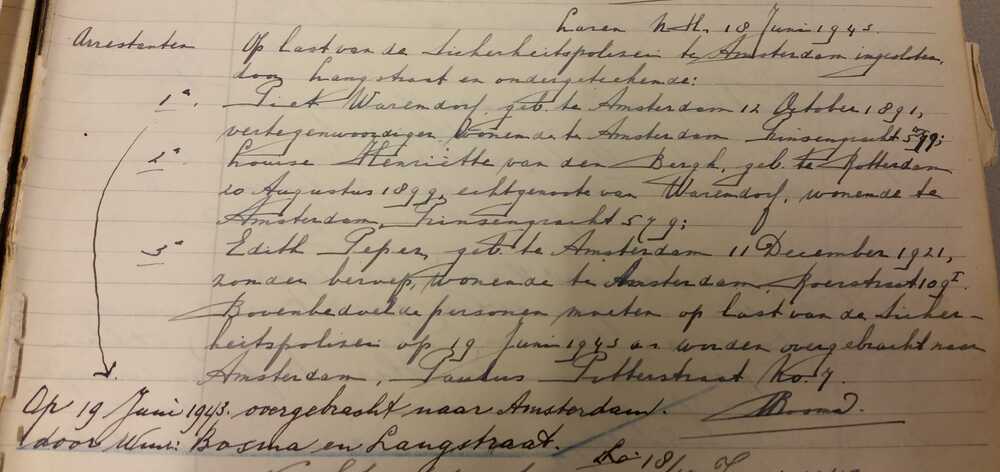 Laren N.H. 18 Juni 1943.
Arrestanten Op last van de Sicherheitspolizei te Amsterdam ingesloten,
door Langstraat en ondergeteekende:
1e. Piet Warendorf, geb. te Amsterdam 12 October 1891,
vertegenwoordiger, wonende te Amsterdam Prinsengracht 579;
2e Louise Henriëtte van den Bergh, geb. te Rotterdam
20 Augustus 1899, echtgenoote van Warendorf, wonende te
Amsterdam, Prinsengracht 579;
3e Edith Peper, geb. te Amsterdam 11 December 1921,
zonder beroep, wonende te Amsterdam, Roerstraat 109 I.
Bovenbedoelde personen moeten op last van de Sicher-
heitspolizei op 19 Juni 1943 a.s. worden overgebracht naar
Amsterdam, Paulus Potterstraat No. 7.
Op 19 Juni 1943. overgebracht naar Amsterdam. Bosma.
door Bosma en Langstraat.
18/